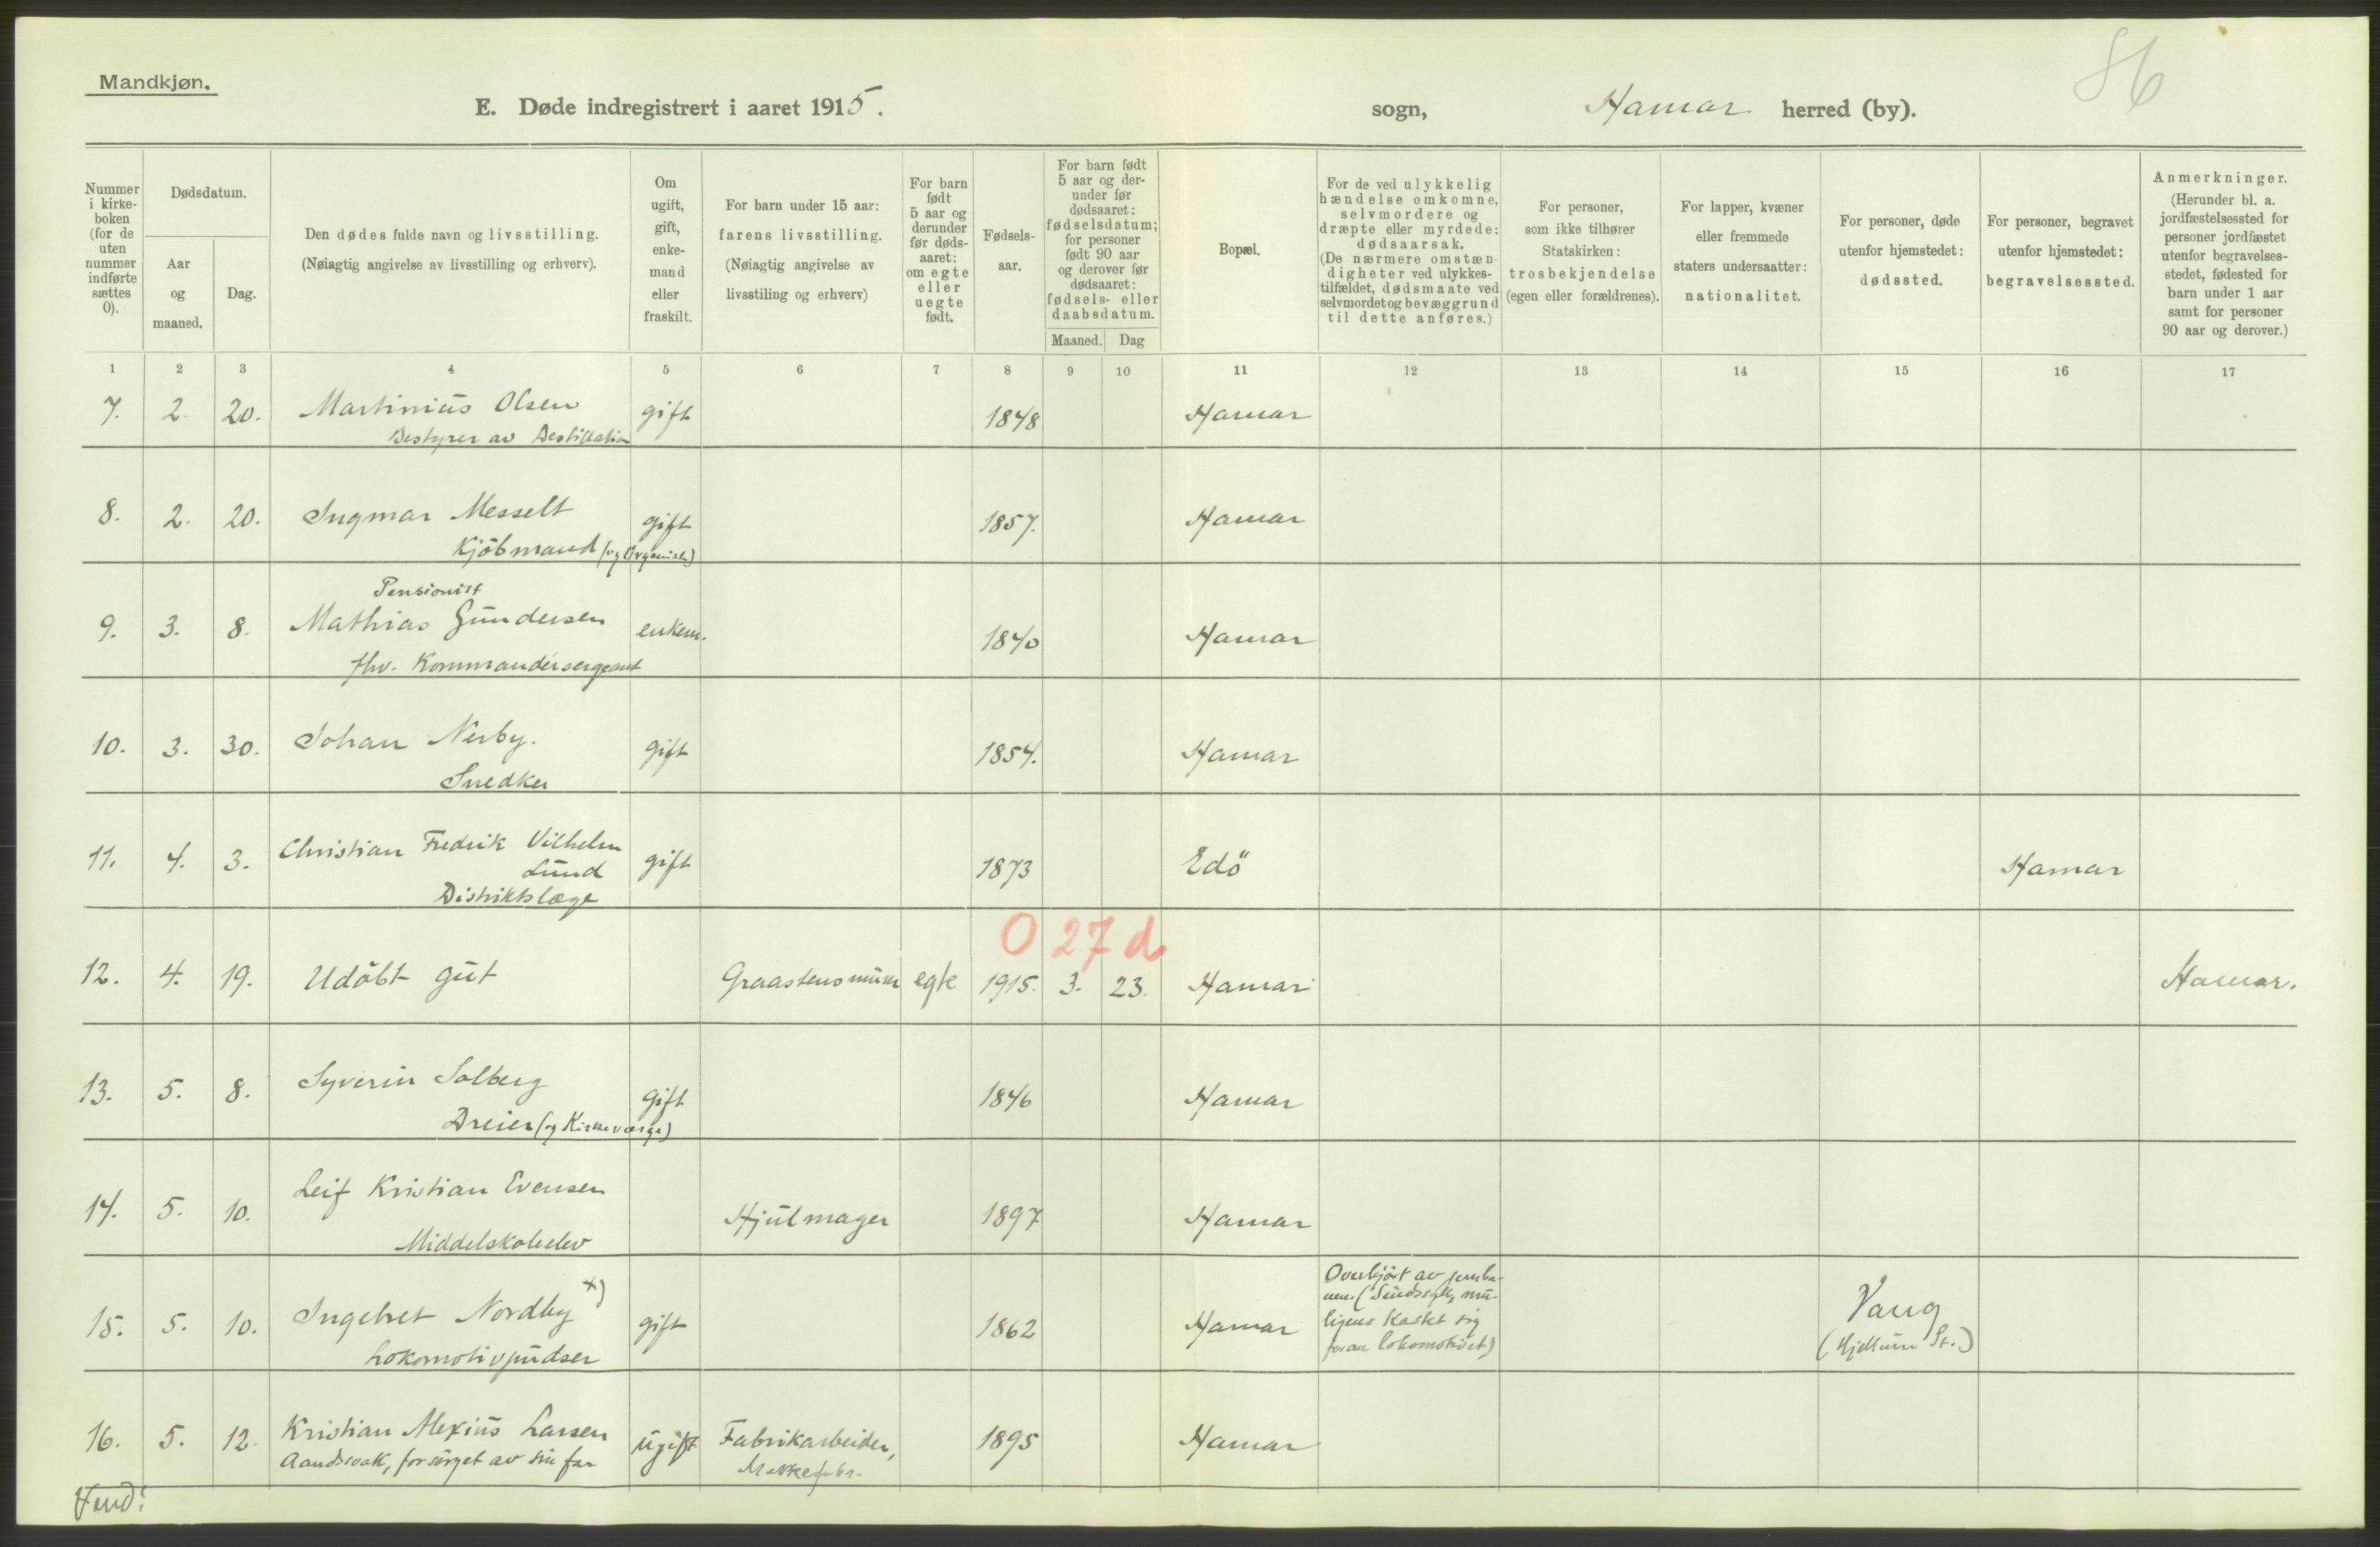 Mandkjøn.
86
E. Døde indregistrert i aaret 1915. sogn, Hamar herred (by).
Nummer i kirkeboken (for de uten nummer indførte sættes 0).
Dødsdatum.
Aar og maaned.
Dag.
Den dødes fulde navn og livsstilling.
(Nøiagtig angivelse av livsstilling og erhverv).
Om ugift, gift, enkemand eller fraskilt.
For barn under 15 aar: farens livsstilling.
(Nøiagtig angivelse av livsstiling og erhverv)
For barn født 5 aar og derunder før dødsaaret: om egte eller uegte født.
Fødselsaar.
For barn født 5 aar og derunder før dødsaaret: fødselsdatum; for personer født 90 aar og derover før dødsaaret: fødsels- eller daabsdatum.
Maaned. Dag
Bopæl.
For de ved ulykkelig hændelse omkomne, selvmordere og dræpte eller myrdede: dødsaarsak.
(De nærmere omstændigheter ved ulykkestilfældet, dødsmaate ved selvmordet og bevæggrund til dette anføres.)
For personer, som ikke tilhører Statskirken: trosbekjendelse (egen eller forældrenes).
For lapper, kvæner eller fremmede staters undersaatter: nationalitet.
For personer, døde utenfor hjemstedet: dødssted.
For personer, begravet utenfor hjemstedet: begravelsessted.
Anmerkninger.
(Herunder bl. a. jordfæstelsessted for personer jordfæstet utenfor begravelsesstedet, fødested for barn under 1 aar samt for personer 90 aar og derover.)
1 2 3 4 5 6 7 8 9 10 11 12 13 14 15 16 17
7. 2. 20. Martinius Olsen gift 1848 Hamar
Bestyrer av Destillation
8. 2. 20. Ingmar Messelt gift 1857. Hamar
Kjöbmand (og Organist)
Pensionist
9. 3. 8. Mathias Gundersen enkem. 1840 Hamar
fhv. Kommandersergeant
10. 3. 30. Johan Nerby. gift 1854. Hamar
Snedker
11. 4. 3. Christian Fredrik Vilhelm gift 1873 Edö Hamar
Lund
Distriktslæge
0 27 d
12. 4. 19. Udöbt gut Graastensmurer egte 1915. 3. 23. Hamar Hamar.
13. 5. 8. Syverin Solberg gift 1846 Hamar
Dreier (og Kirkeværge)
14. 5. 10. Leif Kristian Evensen Hjulmager 1897 Hamar
Middelskoleelev
15. 5. 10. Ingebret Nordby x) gift 1862 Hamar Overkjört av jernbanen. (Sindssyk, muligens kastet sig foran lokomotivet) Vang (Hjellum St.)
Lokomotivpudser
16. 5. 12. Kristian Alexius Larsen ugift Fabrikarbeider, 1895 Hamar
Aandssvak, forsörget av sin far
Vend!